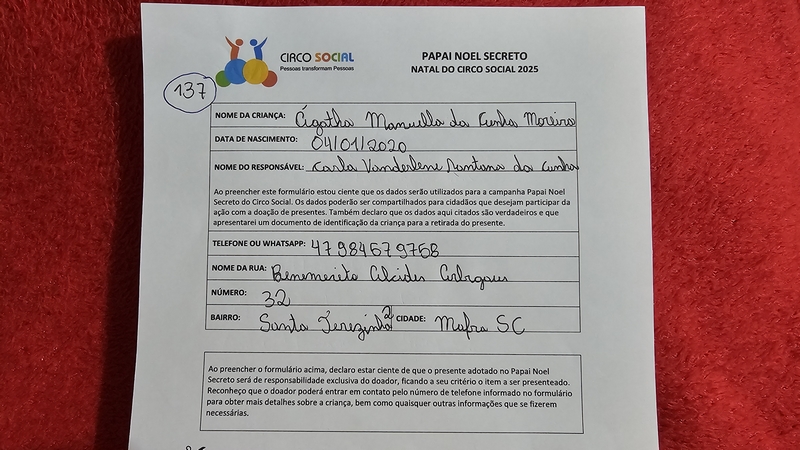 CIRCO SOCIAL
Pessoas transformam Pessoas
PAPAI NOEL SECRETO
NATAL DO CIRCO SOCIAL 2025
137
NOME DA CRIANÇA: Ágatha Manuella da Cunha Moreira
DATA DE NASCIMENTO: 04/01/2020
NOME DO RESPONSÁVEL: Carla Vanderlene Santana da Cunha
Ao preencher este formulário estou ciente que os dados serão utilizados para a campanha Papai Noel
Secreto do Circo Social. Os dados poderão ser compartilhados para cidadãos que desejam participar da
ação com a doação de presentes. Também declaro que os dados aqui citados são verdadeiros e que
apresentarei um documento de identificação da criança para a retirada do presente.
TELEFONE OU WHATSAPP: 47 984679768
NOME DA RUA: Benemerito Alcides
NÚMERO: 32
BAIRRO: Santa Terezinha CIDADE: Mafra SC
Ao preencher o formulário acima, declaro estar ciente de que o presente adotado no Papai Noel
Secreto será de responsabilidade exclusiva do doador, ficando a seu critério o item a ser presenteado.
Reconheço que o doador poderá entrar em contato pelo número de telefone informado no formulário
para obter mais detalhes sobre a criança, bem como quaisquer outras informações que se fizerem
necessárias.